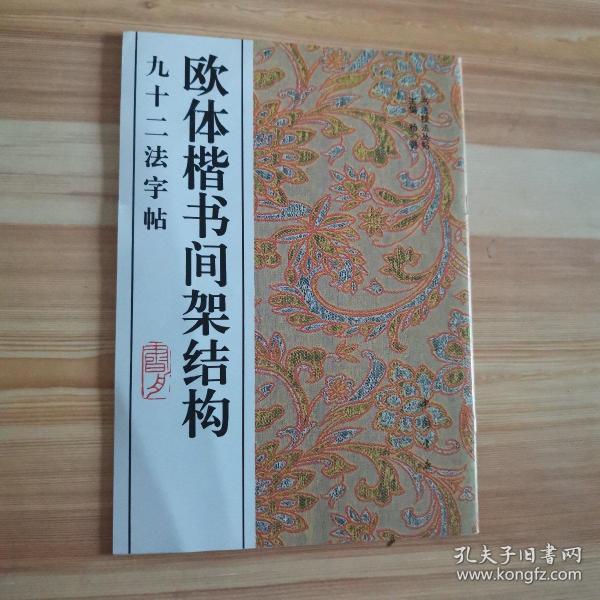 欧体楷书间架结构
九十二法字帖
主编 杨璐
中国书店
孔夫子旧书网
www.kongfz.com